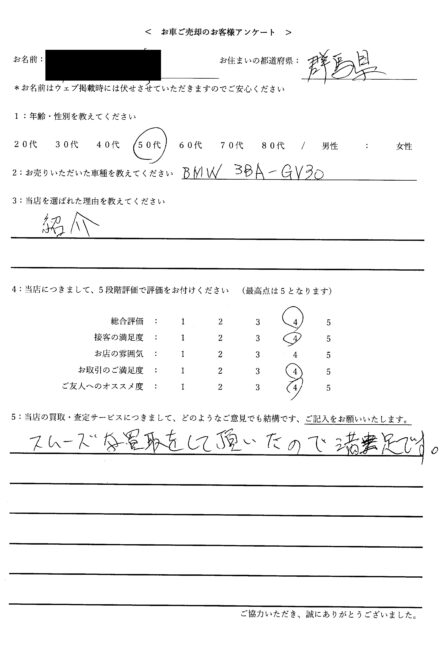 ＜　お車ご売却のお客様アンケート　＞
お名前：　お住まいの都道府県：　群馬県
＊お名前はウェブ掲載時には伏せさせていただきますのでご安心ください
1：年齢・性別を教えてください
20代　30代　40代　50代　60代　70代　80代　/　男性　：　女性
2：お売りいただいた車種を教えてください　BMW 3BA-GV30
3：当店を選ばれた理由を教えてください
紹介
4：当店につきまして、5段階評価で評価をお付けください　（最高点は5となります）
総合評価　：　1　2　3　4　5
接客の満足度　：　1　2　3　4　5
お店の雰囲気　：　1　2　3　4　5
お取引のご満足度　：　1　2　3　4　5
ご友人へのオススメ度　：　1　2　3　4　5
5：当店の買取・査定サービスにつきまして、どのようなご意見でも結構です、ご記入をお願いいたします。
スムーズな買取をして頂いたので満足です。
ご協力いただき、誠にありがとうございました。